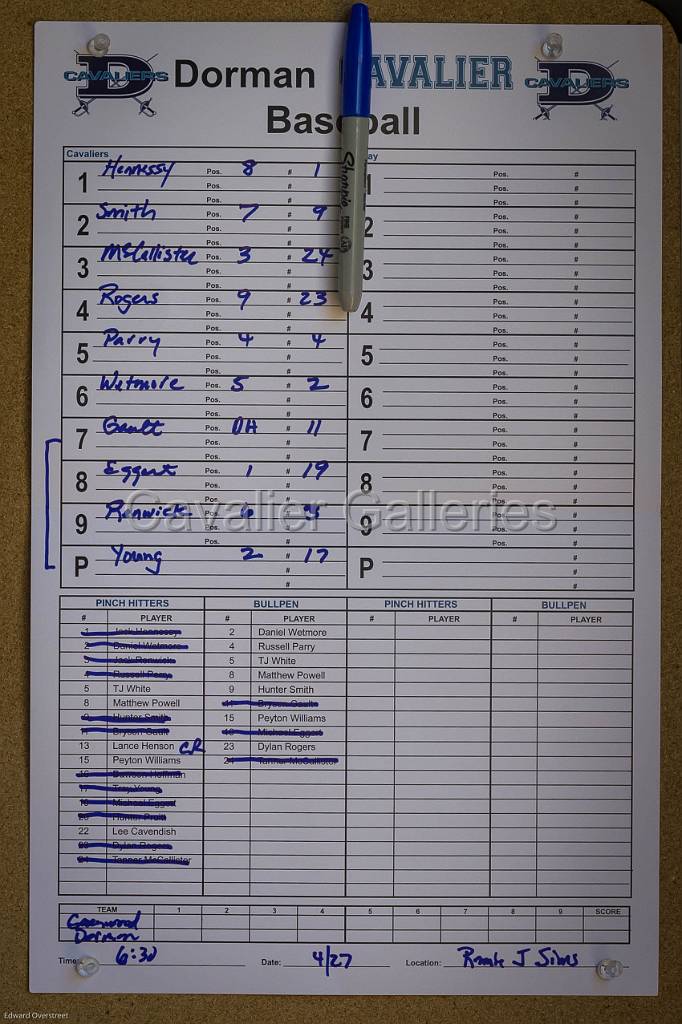 CAVALIERS Dorman CAVALIER CAVALIERS
Baseball
Cavaliers
1 Hennessy Pos. 8 # 1 Pos. #
Pos. # Pos. #
Pos. # Pos. #
2 Smith Pos. 7 # 9 2 Pos. #
Pos. # Pos. #
Pos. # Pos. #
3 McCallister Pos. 3 # 24 3 Pos. #
Pos. # Pos. #
Pos. # Pos. #
4 Rogers Pos. 9 # 23 4 Pos. #
Pos. # Pos. #
Pos. # Pos. #
5 Parry Pos. 4 # 4 5 Pos. #
Pos. # Pos. #
Pos. # Pos. #
6 Wetmore Pos. 5 # 2 6 Pos. #
Pos. # Pos. #
Pos. # Pos. #
7 Gault Pos. DH # 11 7 Pos. #
Pos. # Pos. #
Pos. # Pos. #
8 Eggert Pos. 1 # 19 8 Pos. #
Pos. # Pos. #
Pos. # Pos. #
9 Renwick Pos. 6 # 9 Pos. #
Pos. # Pos. #
Pos. # Pos. #
P Young 2 # 17 P #
# #
# #
Sharpie
Cavalier Galleries
PINCH HITTERS BULLPEN PINCH HITTERS BULLPEN
# PLAYER # PLAYER # PLAYER # PLAYER
1 Jack Hennessy 2 Daniel Wetmore
2 Daniel Wetmore 4 Russell Parry
3 Jack Renwick 5 TJ White
4 Russell Parry 8 Matthew Powell
5 TJ White 9 Hunter Smith
8 Matthew Powell 11 Bryson Gault
9 Hunter Smith 15 Peyton Williams
11 Bryson Gault 19 Michael Eggert
13 Lance Henson CR 23 Dylan Rogers
15 Peyton Williams 24 Tanner McCallister
16 Dawson Hoffman
17 Troy Young
19 Michael Eggert
20 Hunter Pruitt
22 Lee Cavendish
23 Dylan Rogers
24 Tanner McCallister
TEAM 1 2 3 4 5 6 7 8 9 SCORE
Dorman
Time: 6:30 Date: 4/27 Location: J
Edward Overstreet